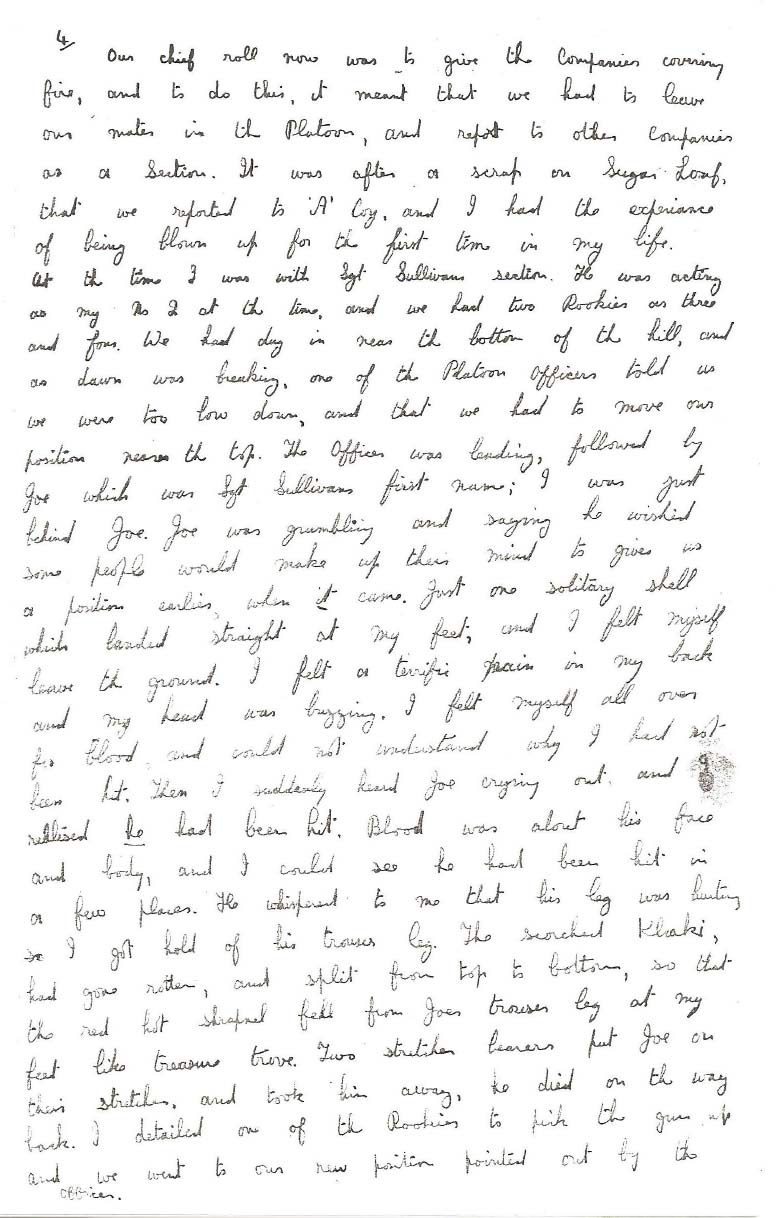 4/
Our chief roll now was to give the Companies covering
fire, and to do this, it meant that we had to leave
our mates in th Platoon, and report to other Companies
as a Section. It was after a scrap on Sugar Loaf,
that we reported to 'A' Coy, and I had the experiance
of being blown up for th first time in my life.
At th time I was with Sgt Sullivans section. He was acting
as my No 2 at th time, and we had two Rookies as three
and four. We had dug in near th bottom of th hill, and
as dawn was breaking, one of th Platoon Officers told us
we were too low down, and that we had to move our
position nearer th top. The Officer was leading, followed by
Joe which was Sgt Sullivans first name; I was just
behind Joe. Joe was grumbling and saying he wished
some people would make up their mind to gives us
a position earlier, when it came. Just one solitary shell
which landed straight at my feet, and I felt myself
leave th ground. I felt a terrific pain in my back
and my head was buzzing. I felt myself all over
for blood, and could not understand why I had not
been hit. Then I suddenly heard Joe crying out, and
realised he had been hit. Blood was about his face
and body, and I could see he had been hit in
a few places. He whispered to me that his leg was hurting
so I got hold of his trouser leg. The scorched Khaki,
had gone rotten, and split from top to bottom, so that
the red hot shrapnel fell from Joes trouser leg at my
feet like treasure trove. Two stretcher bearers put Joe on
their stretcher, and took him away, he died on th way
back. I detailed one of th Rookies to pick th gun up
and we went to our new position pointed out by th
officer.